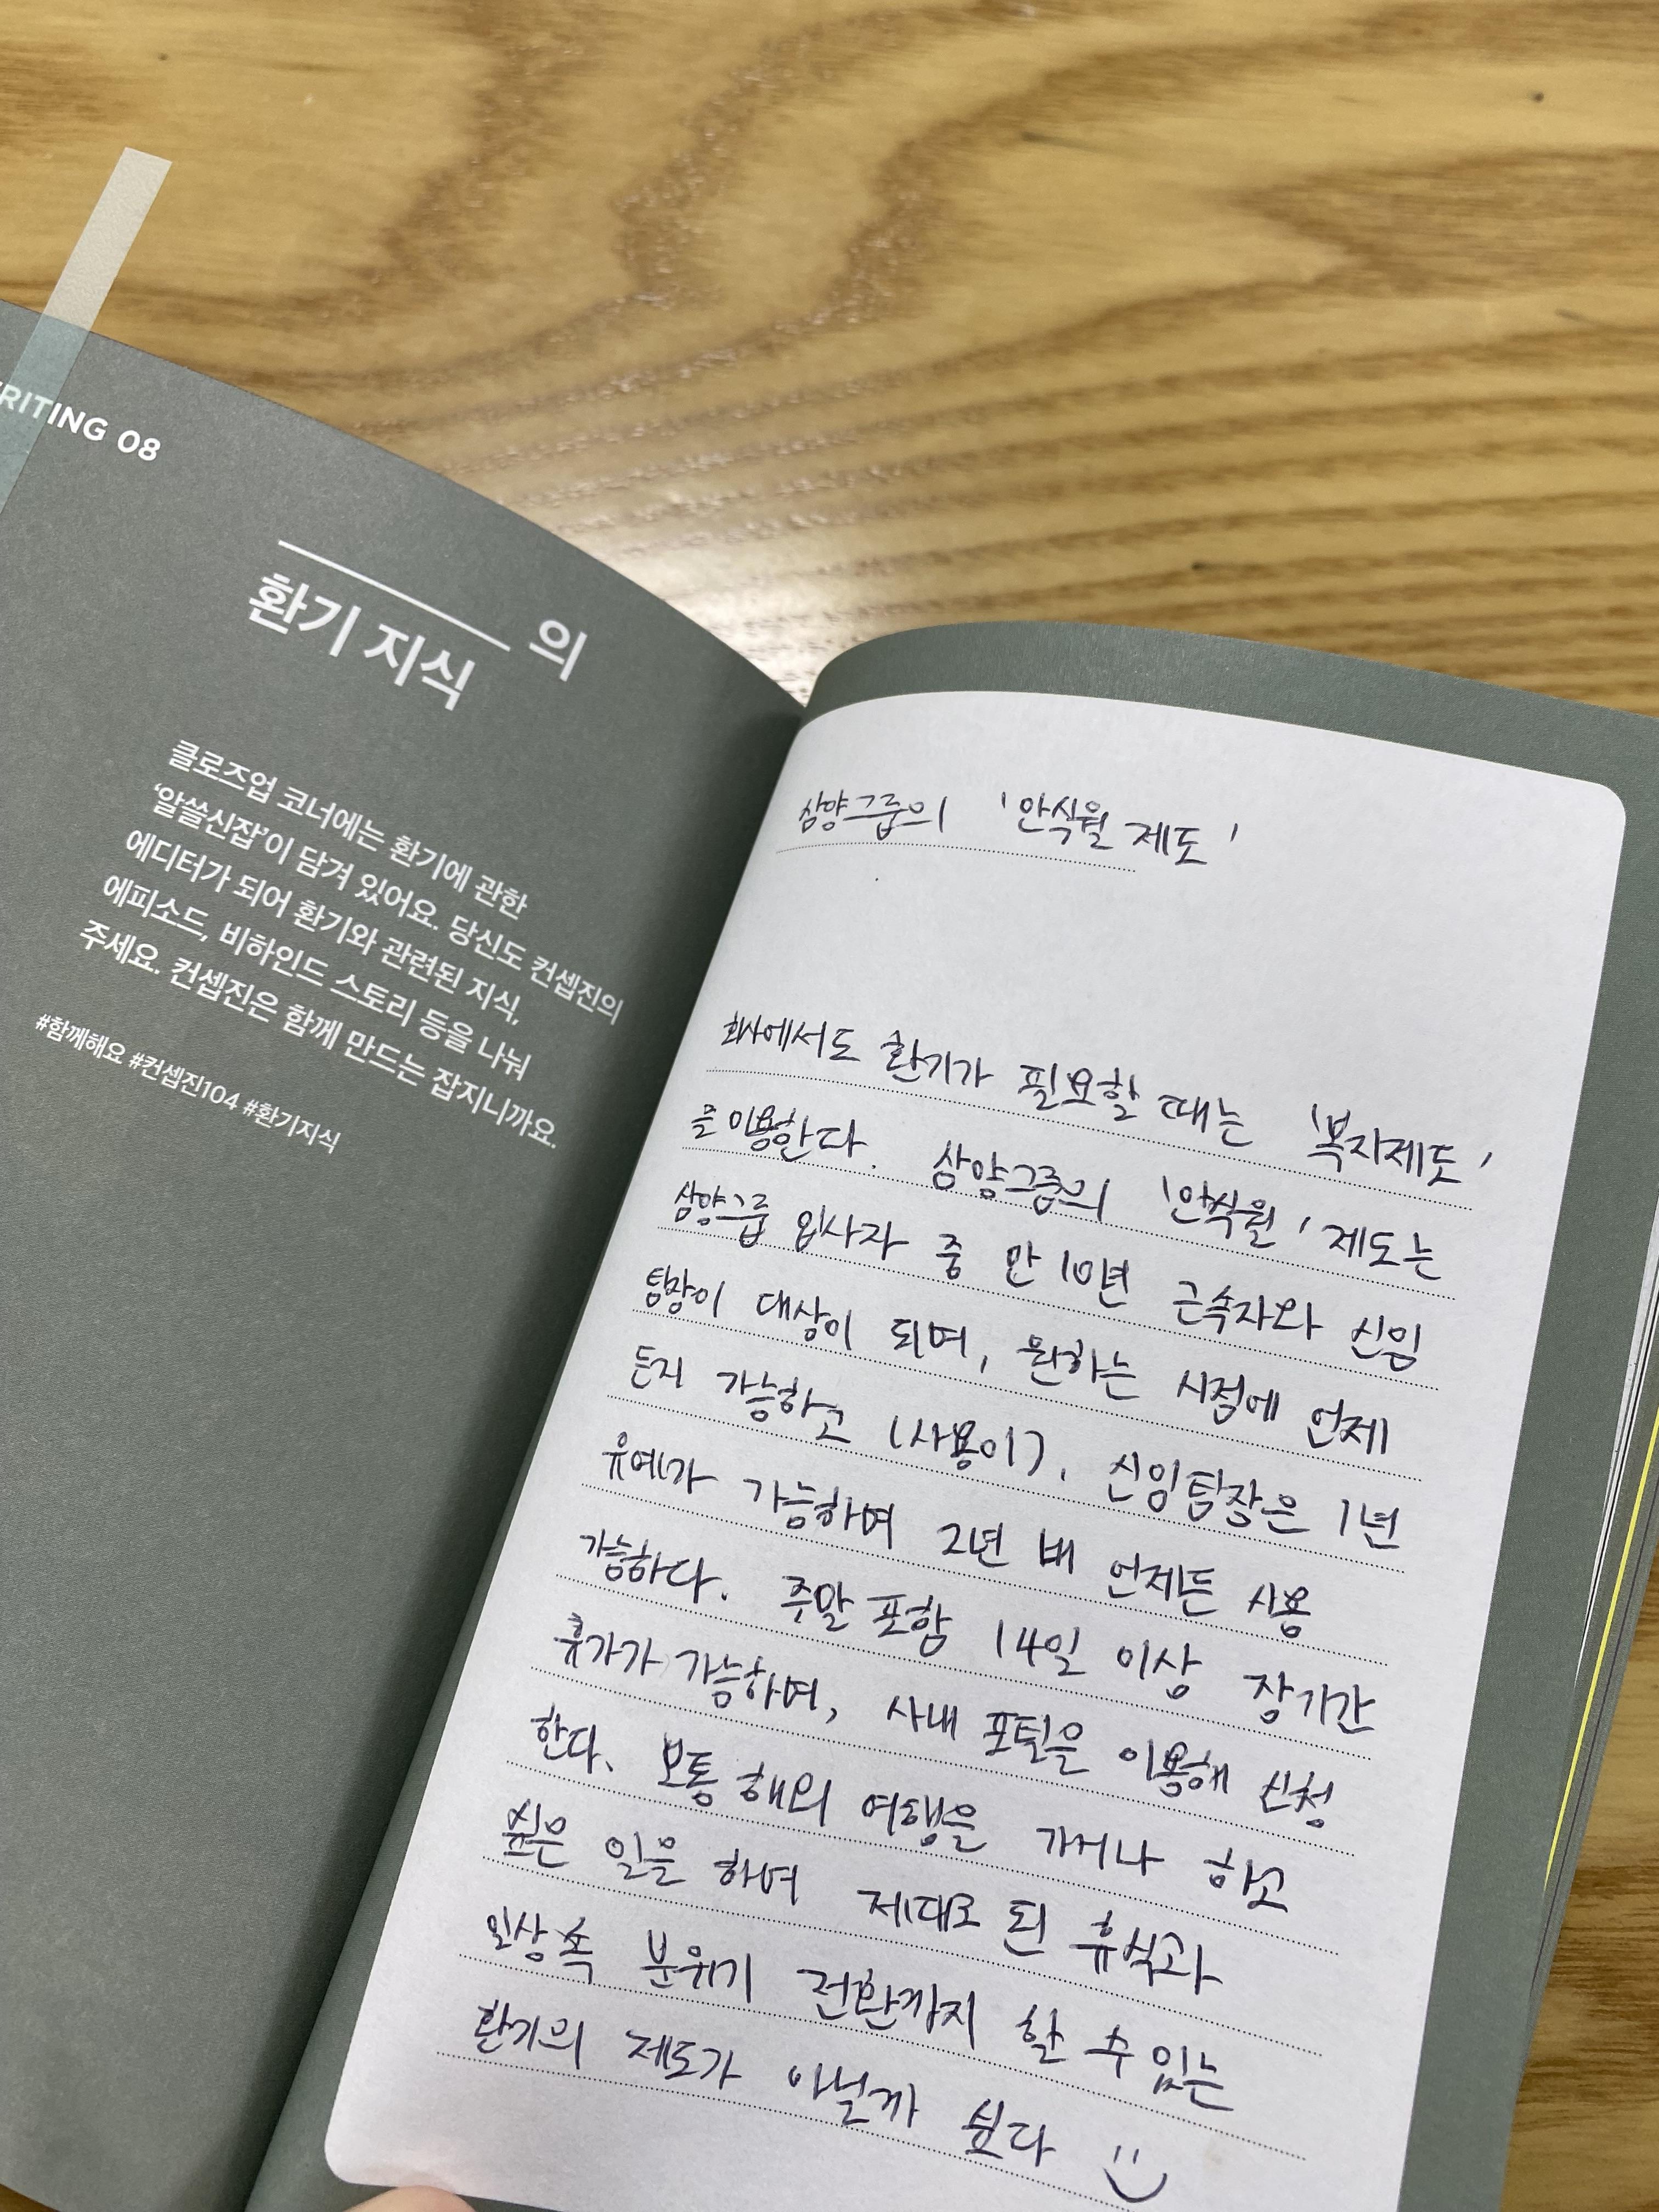 RITING 08
의
환기 지식
클로즈업 코너에는 환기에 관한
‘알쓸신잡’이 담겨 있어요. 당신도 컨셉진의
에디터가 되어 환기와 관련된 지식,
에피소드, 비하인드 스토리 등을 나눠
주세요. 컨셉진은 함께 만드는 잡지니까요.
#함께해요 #컨셉진104 #환기지식
삼양그룹의 '안식월 제도'
회사에서도 환기가 필요할 때는 '복지제도'
를 이용한다. 삼양그룹의 '안식월' 제도는
삼양그룹 입사자 중 만 10년 근속자와 신임
팀장이 대상이 되며, 원하는 시점에 언제
든지 가능하고 (사용이), 신임팀장은 1년
유예가 가능하며 2년 내 언제든 사용
가능하다. 주말 포함 14일 이상 장기간
휴가가 가능하며, 사내 포털을 이용해 신청
한다. 보통 해외 여행을 가거나 하고
싶은 일을 하며 제대로 된 휴식과
일상 속 분위기 전환까지 할 수 있는
환기의 제도가 아닐까 싶다 :)